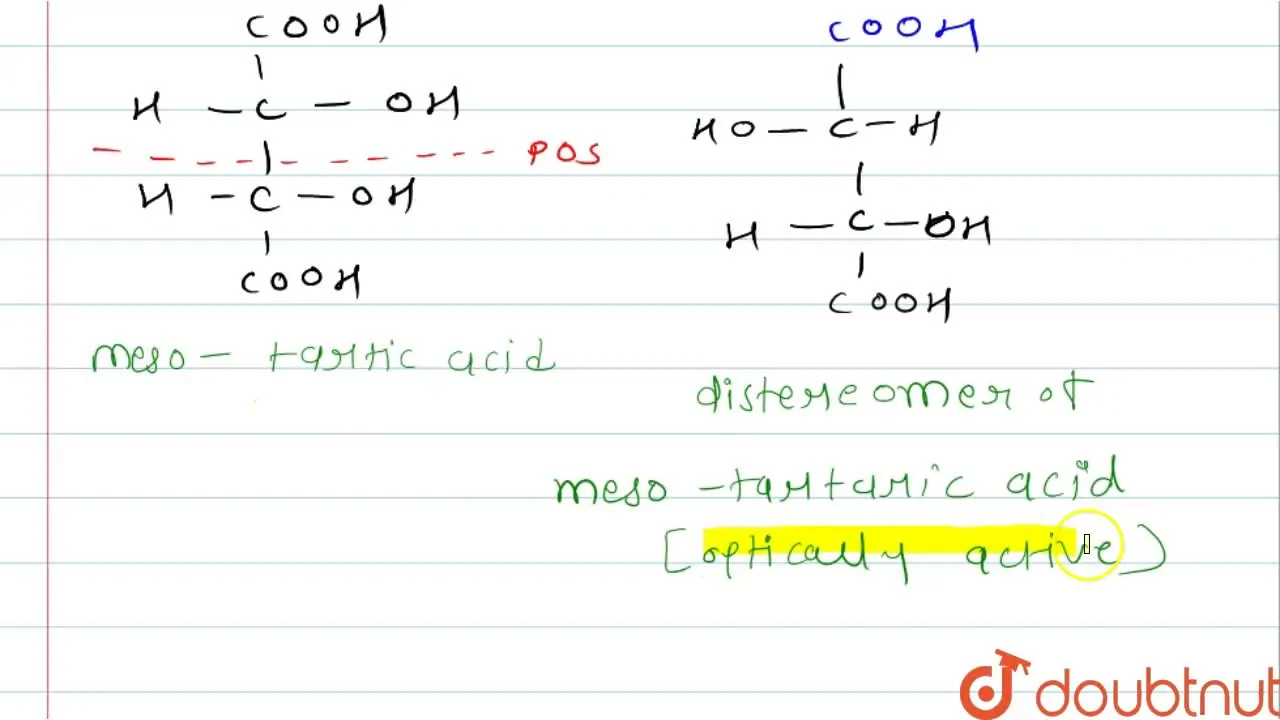 COOH
H - C - OH
POS
H - C - OH
COOH
meso - tartic acid
COOH
HO - C - H
H - C - OH
COOH
distereomer of
meso - tartaric acid
[optically active)
doubtnut